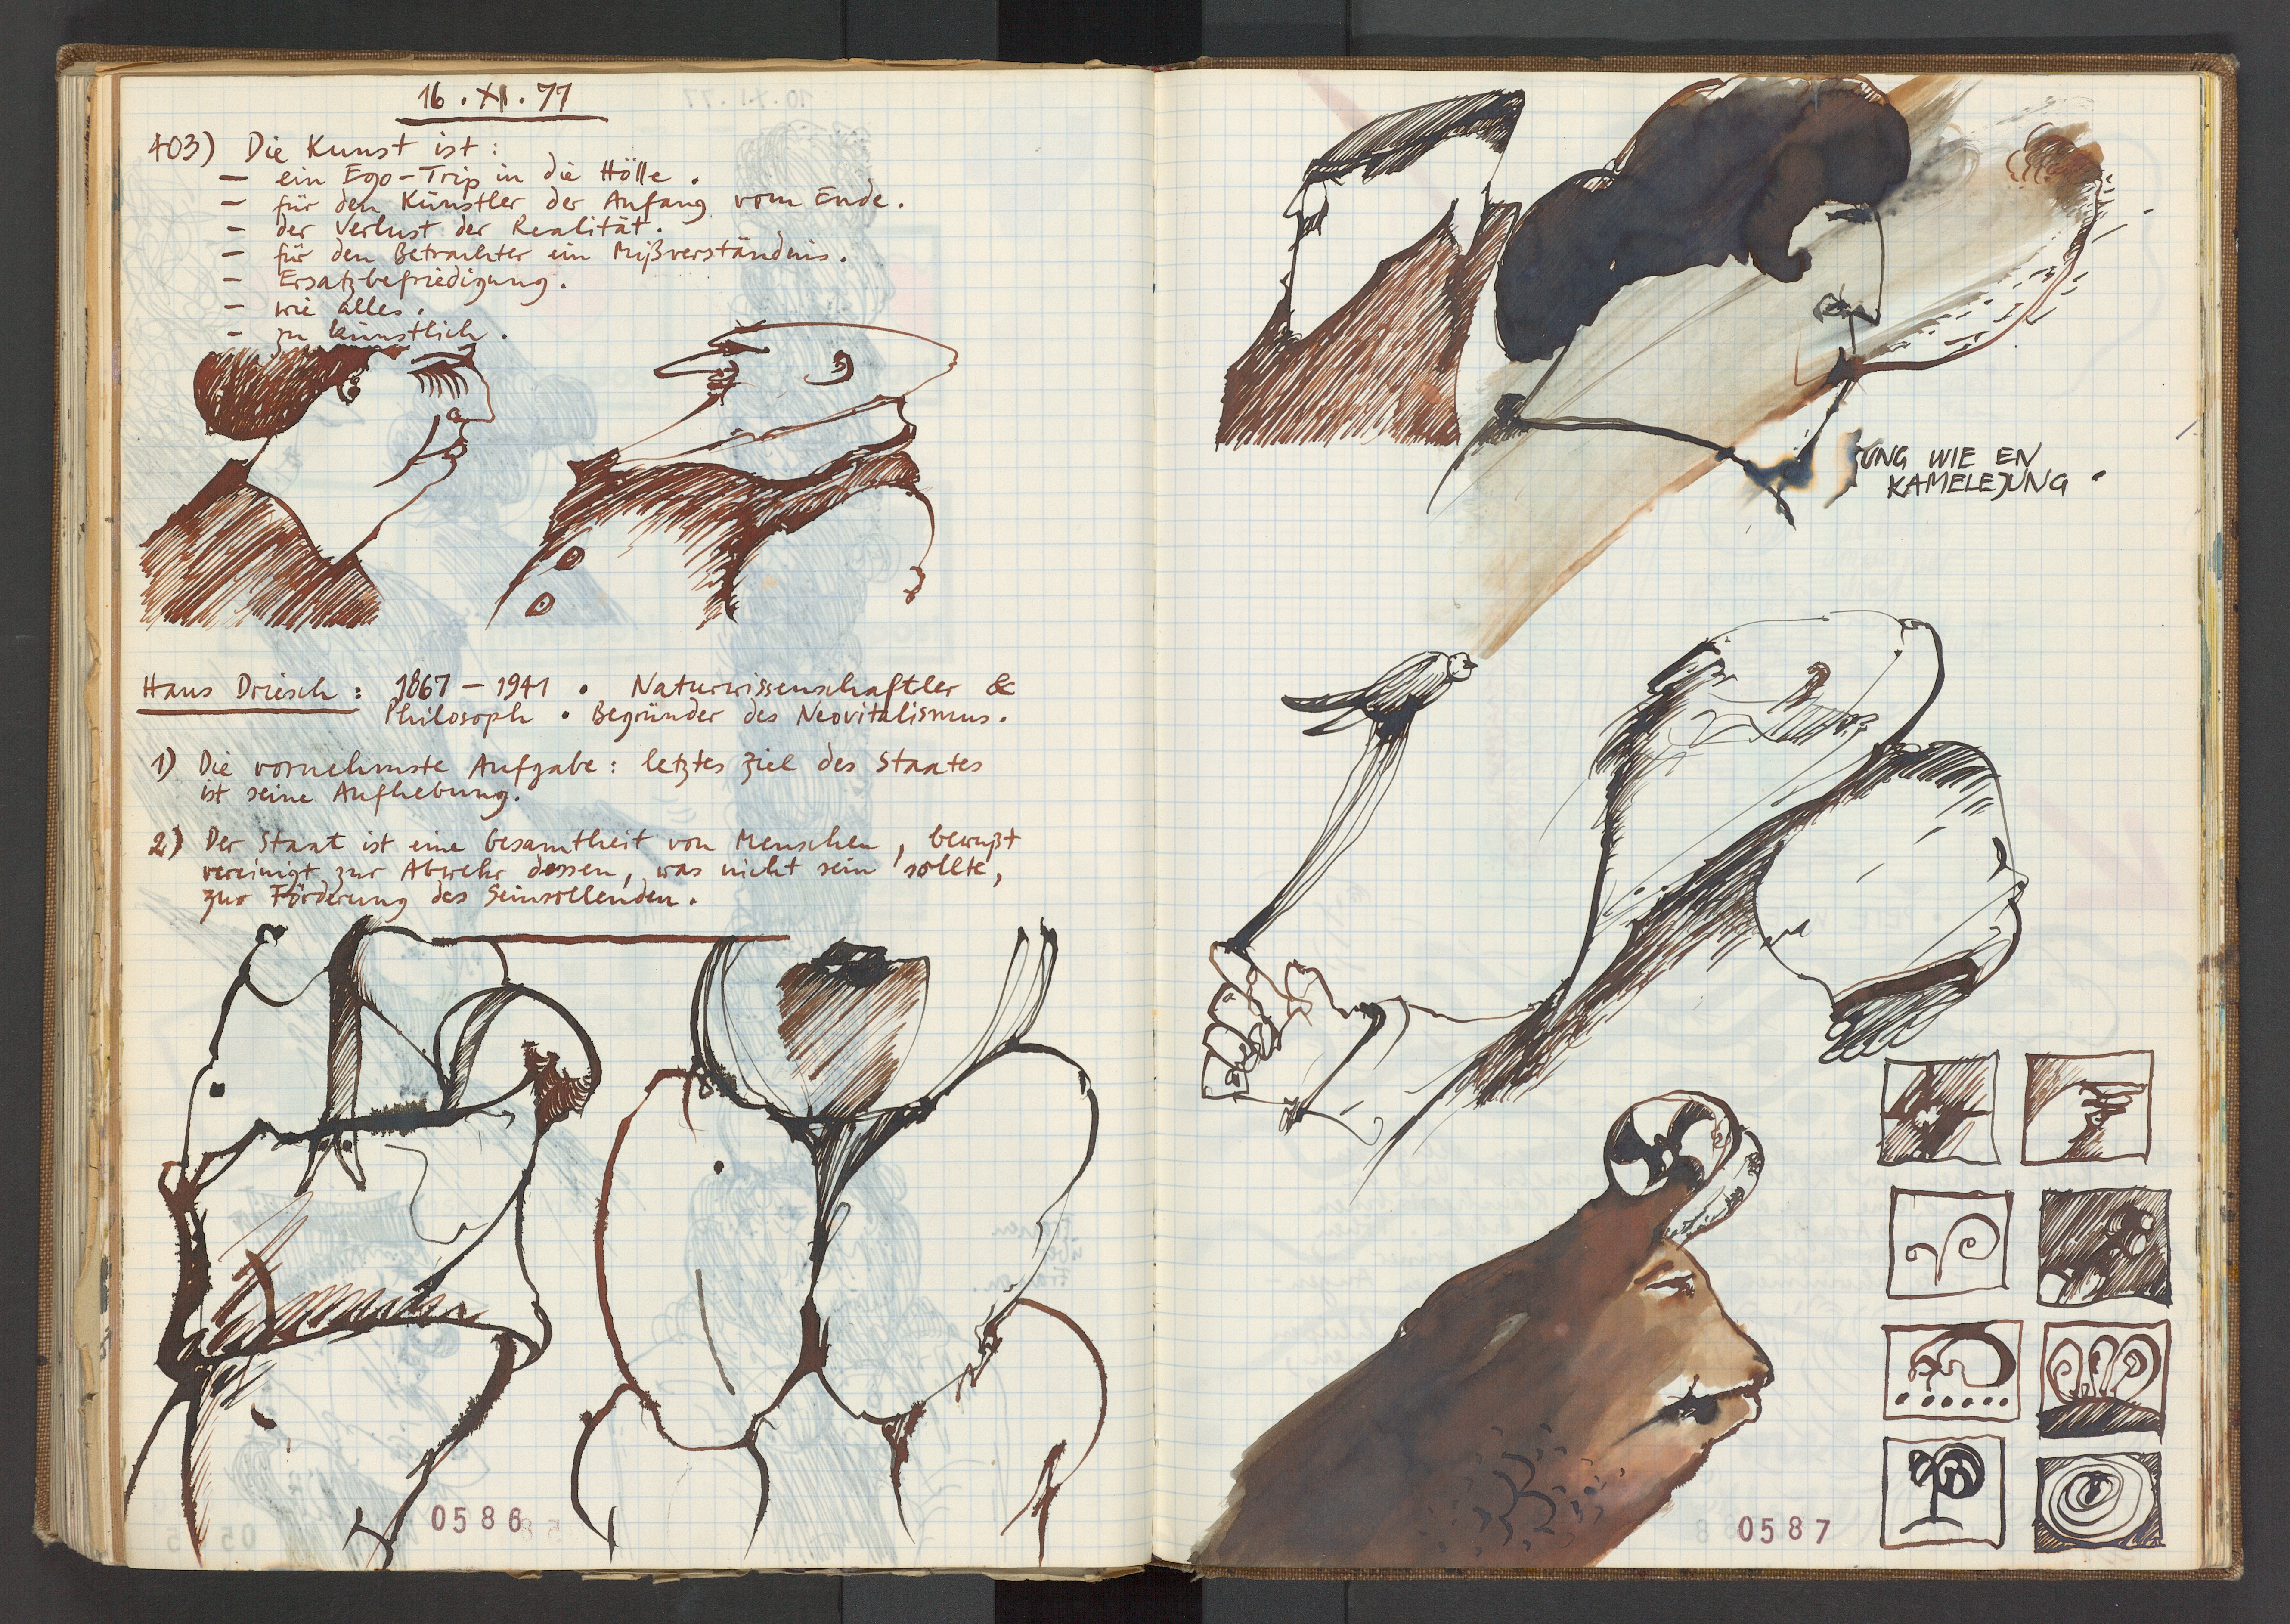 16. XI. 77
403) Die Kunst ist:
– ein Ego-Trip in die Hölle.
– für den Künstler der Anfang vom Ende.
– der Verlust der Realität.
– für den Betrachter ein Mißverständnis.
– Ersatzbefriedigung.
– wie alles.
– zu künstlich.
Hans Driesch: 1867 – 1941 • Naturwissenschaftler &
Philosoph • Begründer des Neovitalismus.
1) Die vornehmste Aufgabe: letztes Ziel des Staates
ist seine Aufhebung.
2) Der Staat ist eine Gesamtheit von Menschen, bewußt
vereinigt zur Abwehr dessen, was nicht sein sollte,
zur Förderung des Seinsollenden.
0586
JUNG WIE EN
KAMELEJUNG.
0587